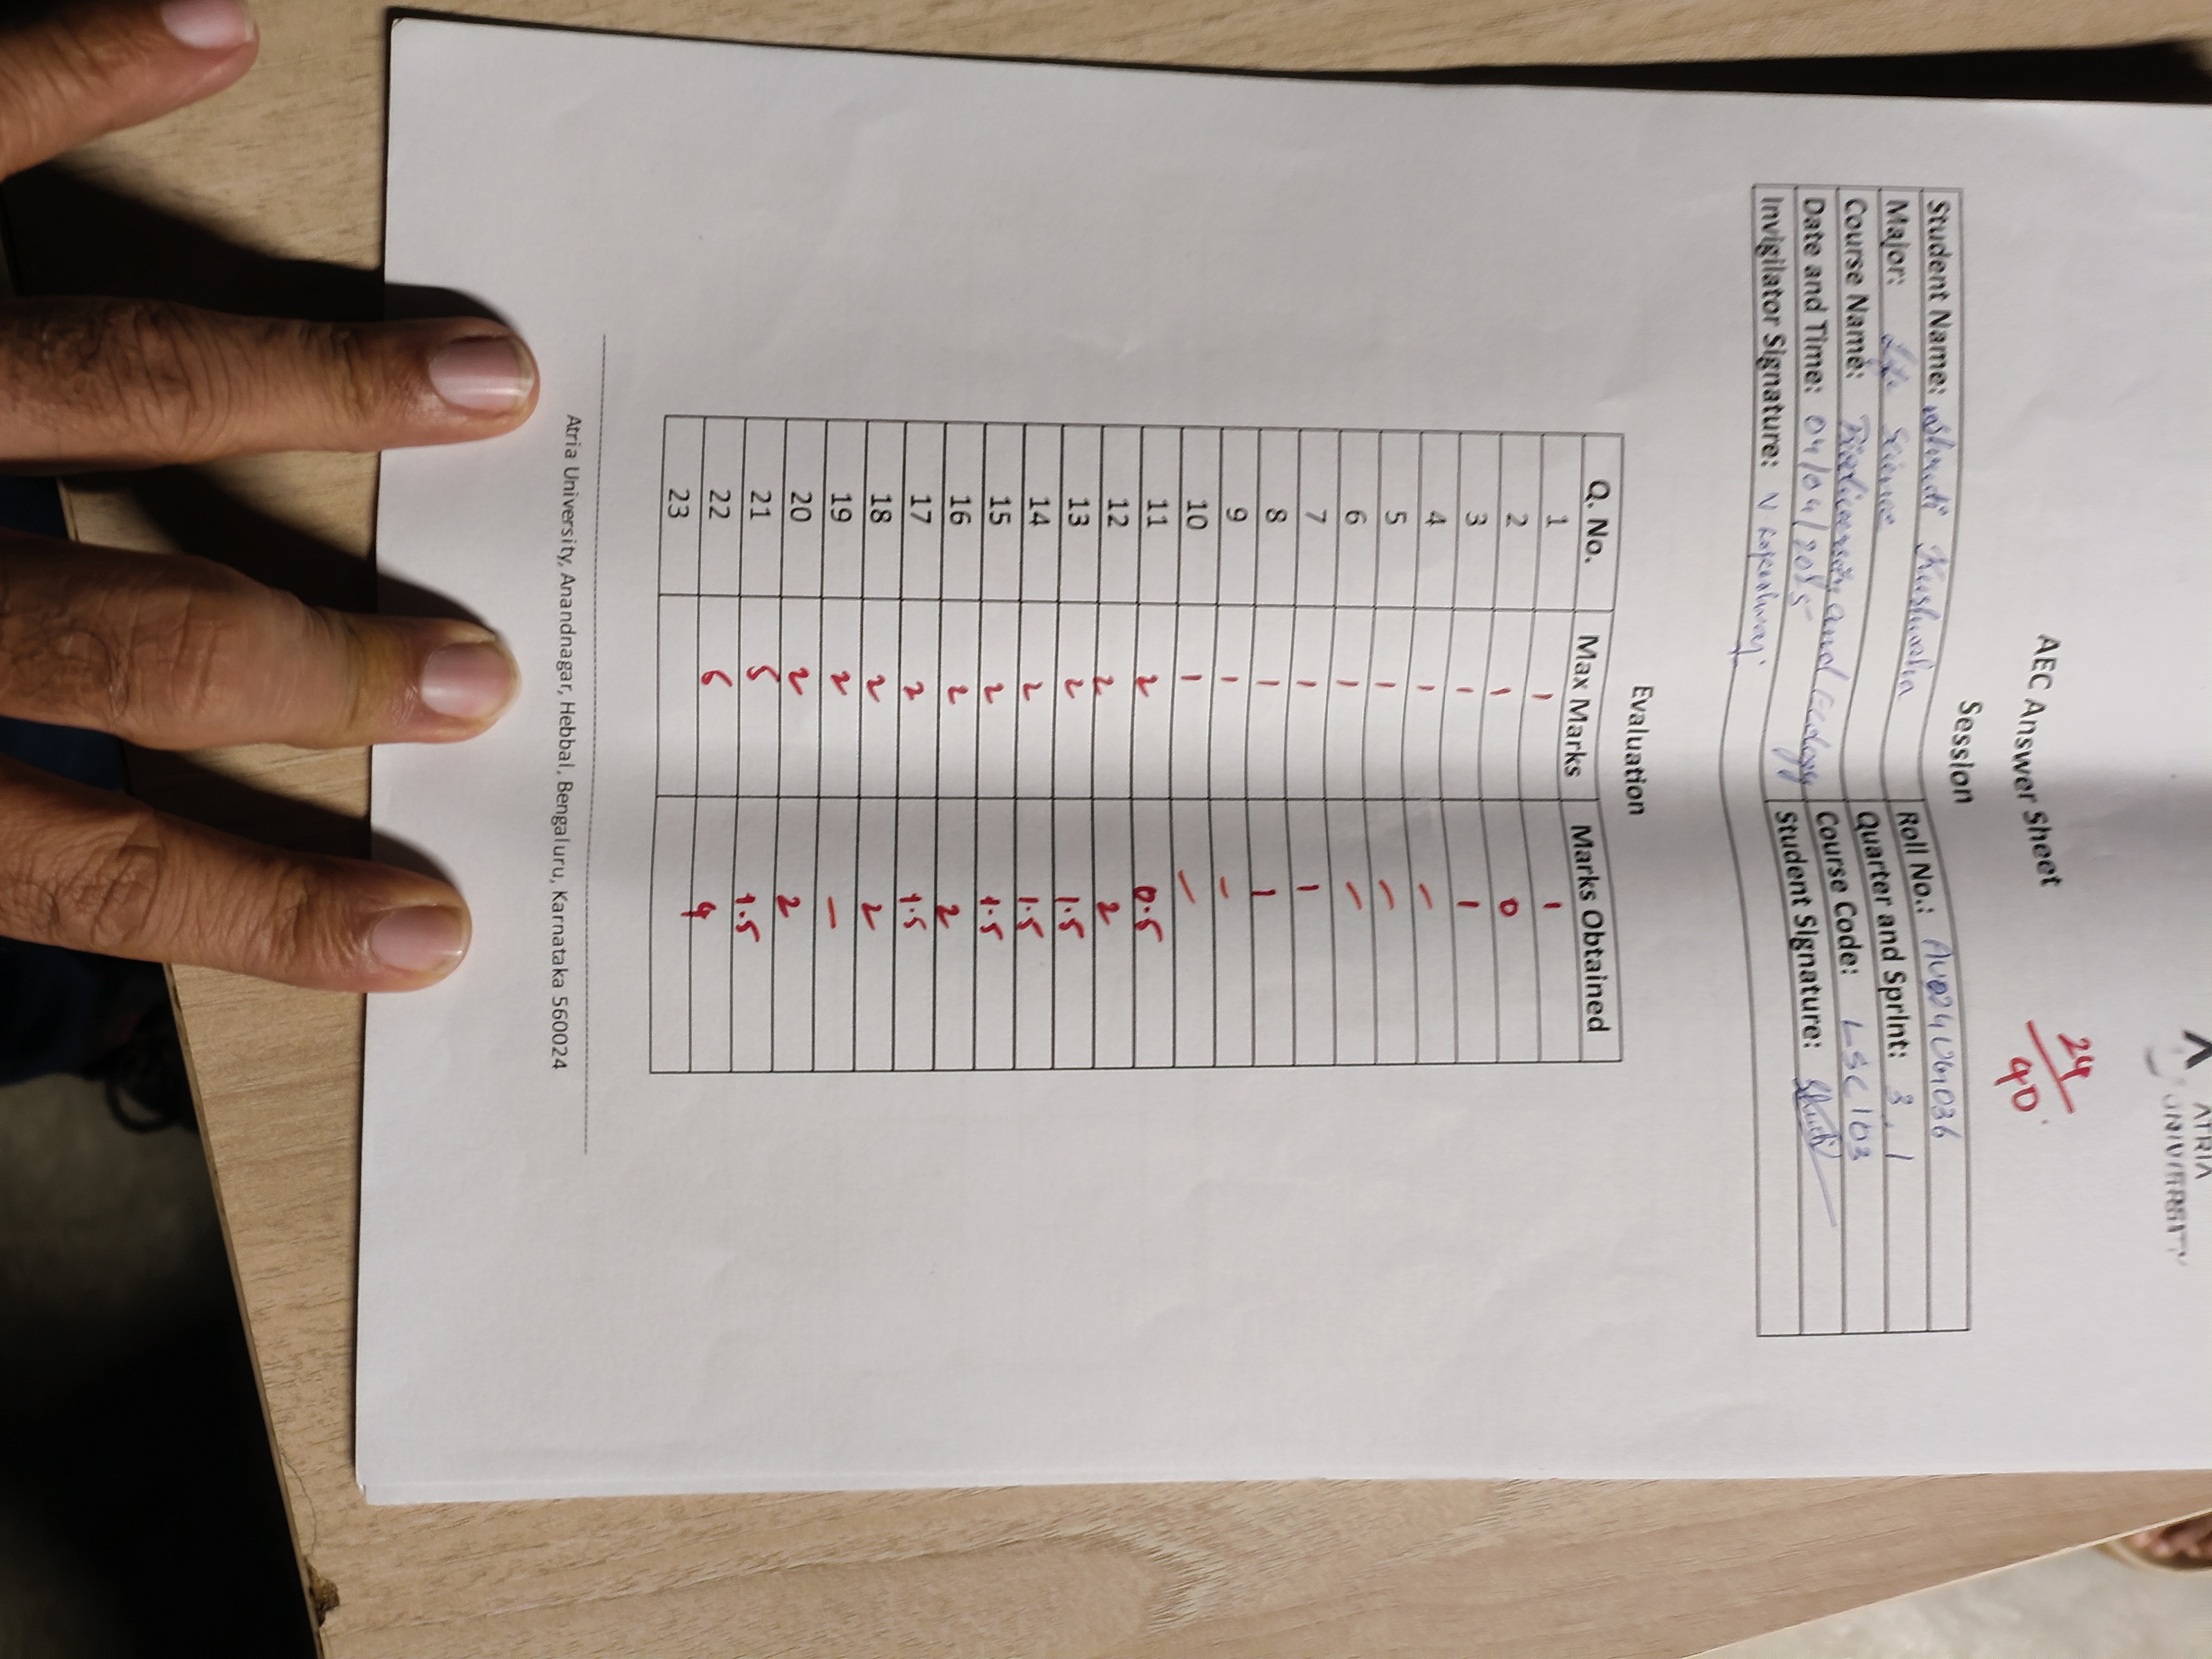 ATRIA
UNIVERSITY
24/40
AEC Answer Sheet
Session
Student Name: Shruti Kushwaha Roll No.:
Major: Life Science Quarter and Sprint: 3.1
Course Name: Biodiversity and Ecology Course Code: LSC103
Date and Time: 04/04/2025 Student Signature: Shruti
Invigilator Signature:
Evaluation
Q. No. Max Marks Marks Obtained
1 1 1
2 1 0
3 1 1
4 1 –
5 1 –
6 1 –
7 1 1
8 1 1
9 1 –
10 1 –
11 2 0.5
12 2 2
13 2 1.5
14 2 1.5
15 2 1.5
16 2 2
17 2 1.5
18 2 2
19 2 –
20 2 2
21 5 1.5
22 6 4
23
Atria University, Anandnagar, Hebbal, Bengaluru, Karnataka 560024